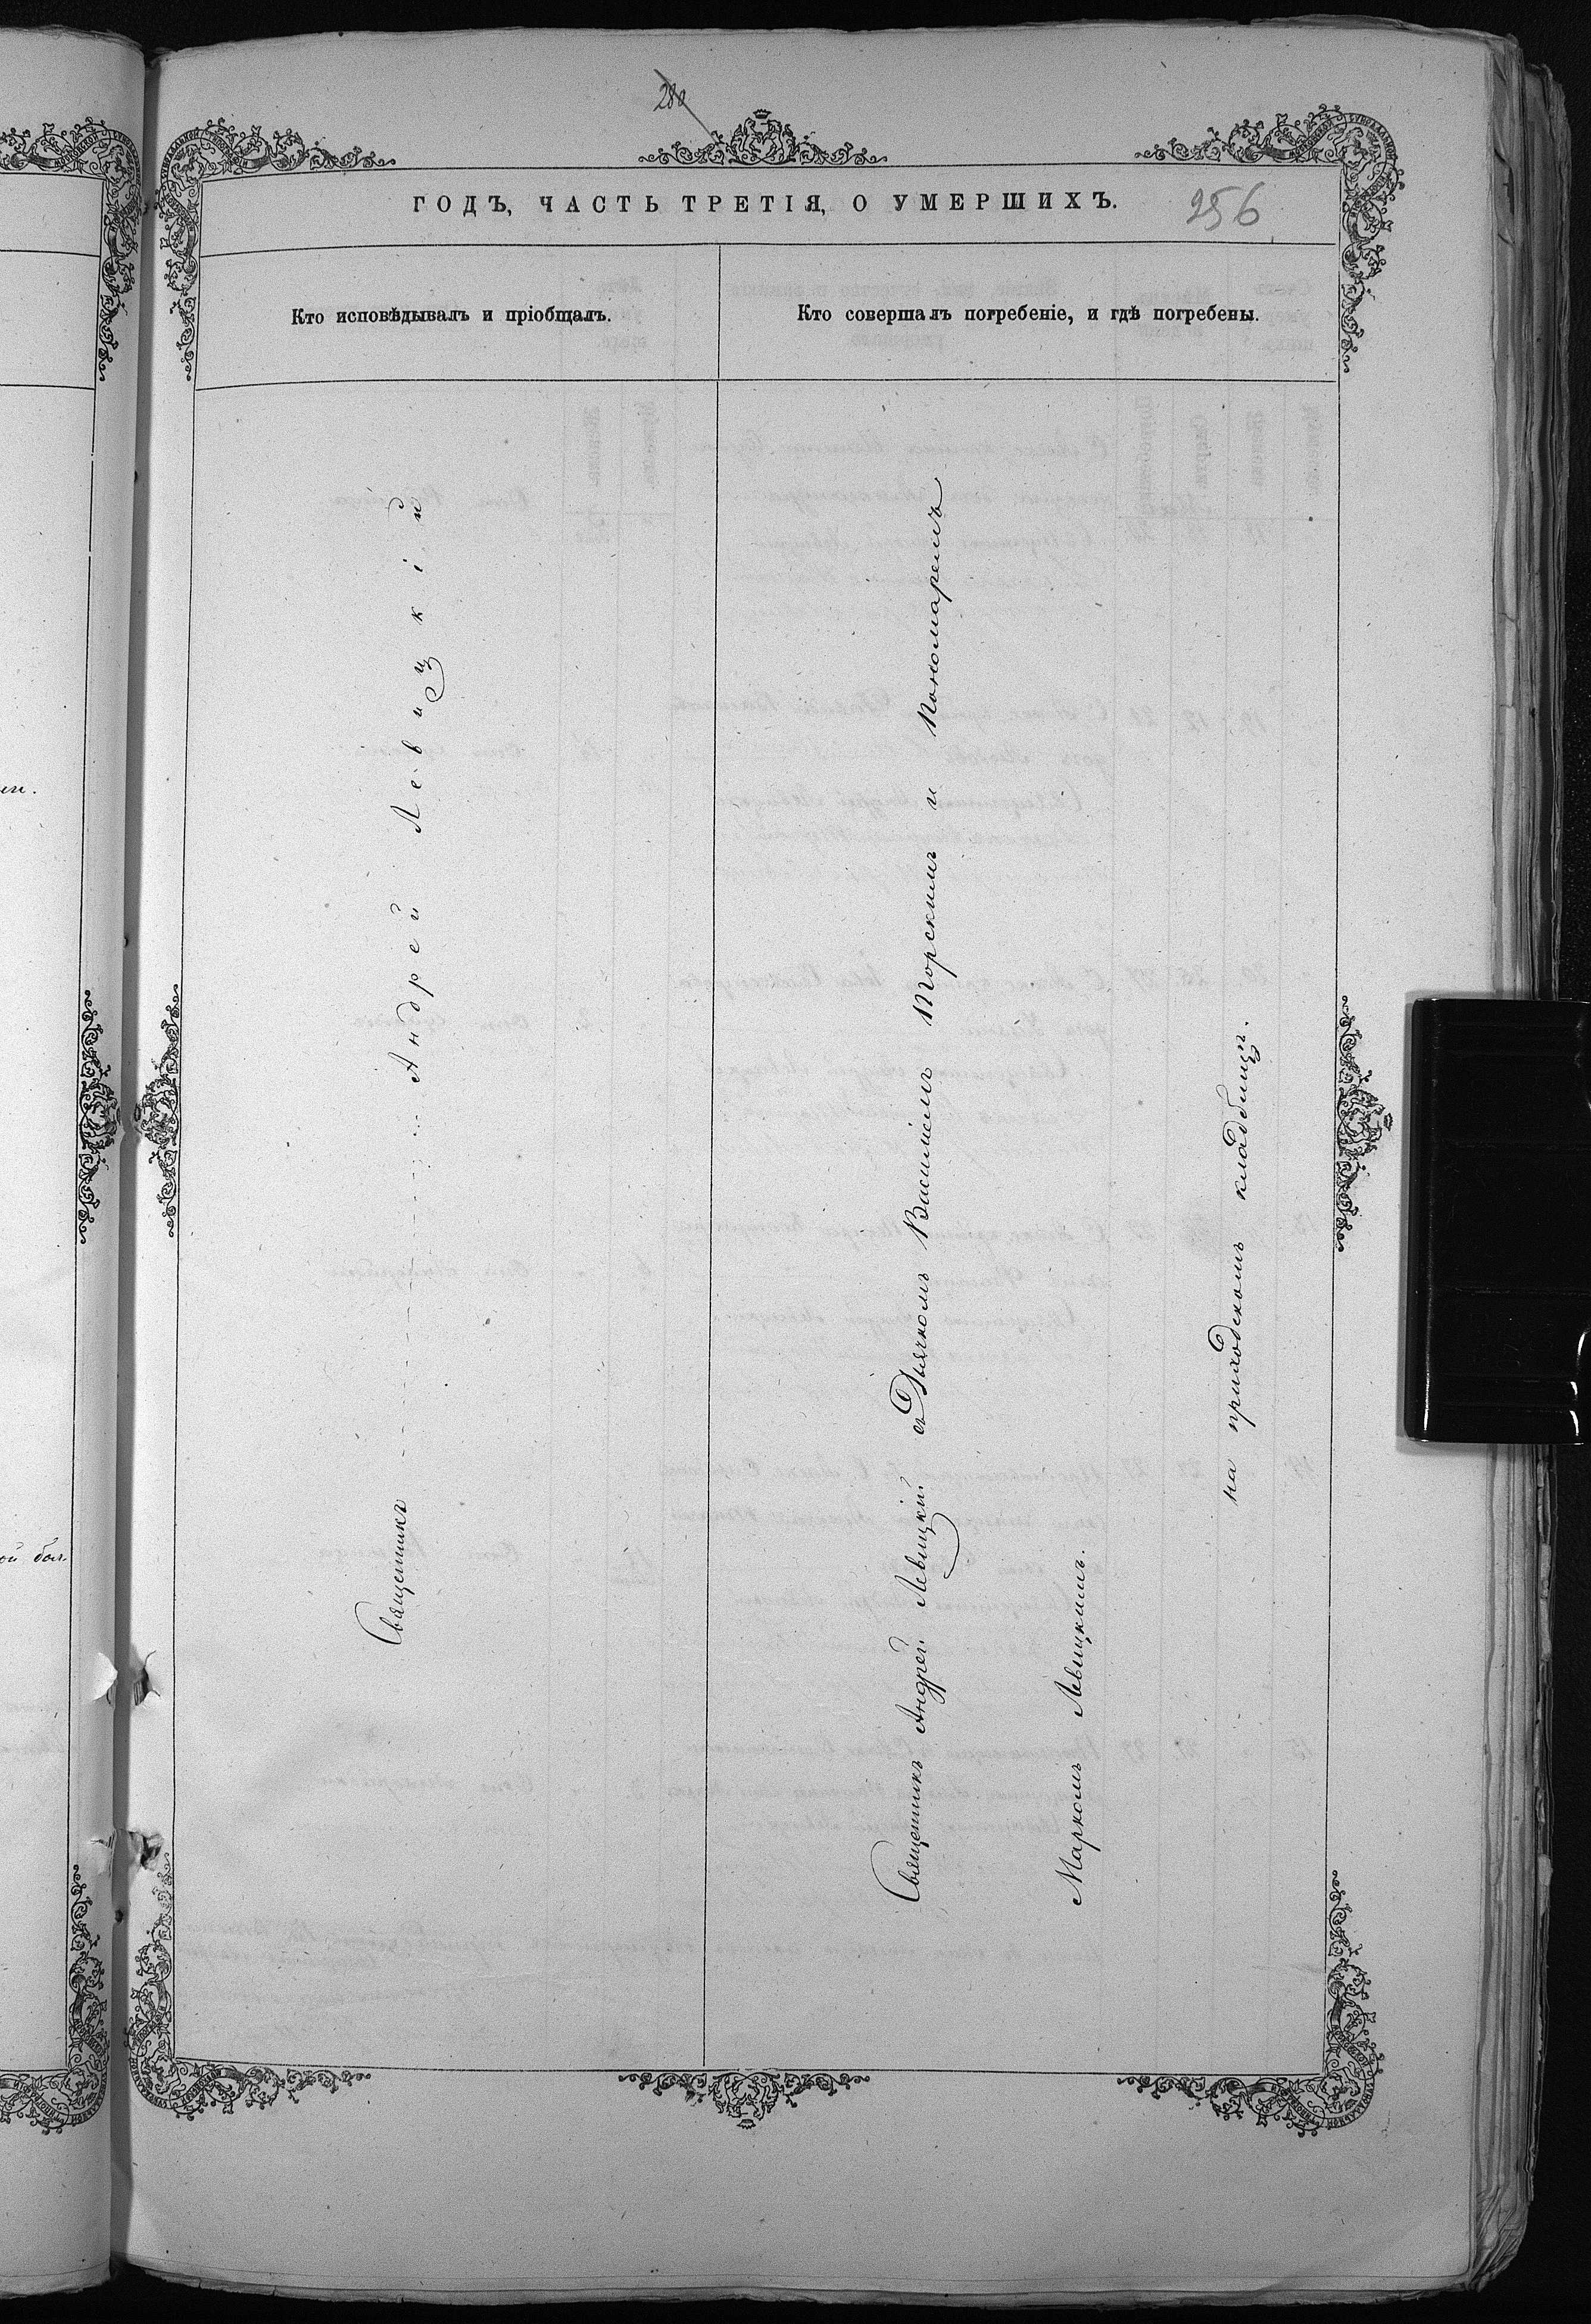 280
ГОДЪ, ЧАСТЬ ТРЕТІЯ, О УМЕРШИХЪ.
256
Кто исповѣдывалъ и пріобщалъ.
Кто совершалъ погребеніе, и гдѣ погребены.
Священникъ Андрей Левицкій
Священникъ Андрей Левицкій съ Дьячкомъ Василіемъ Торскимъ и Пономаремъ
Маркомъ Левицкимъ.
на приходскомъ кладбищѣ.